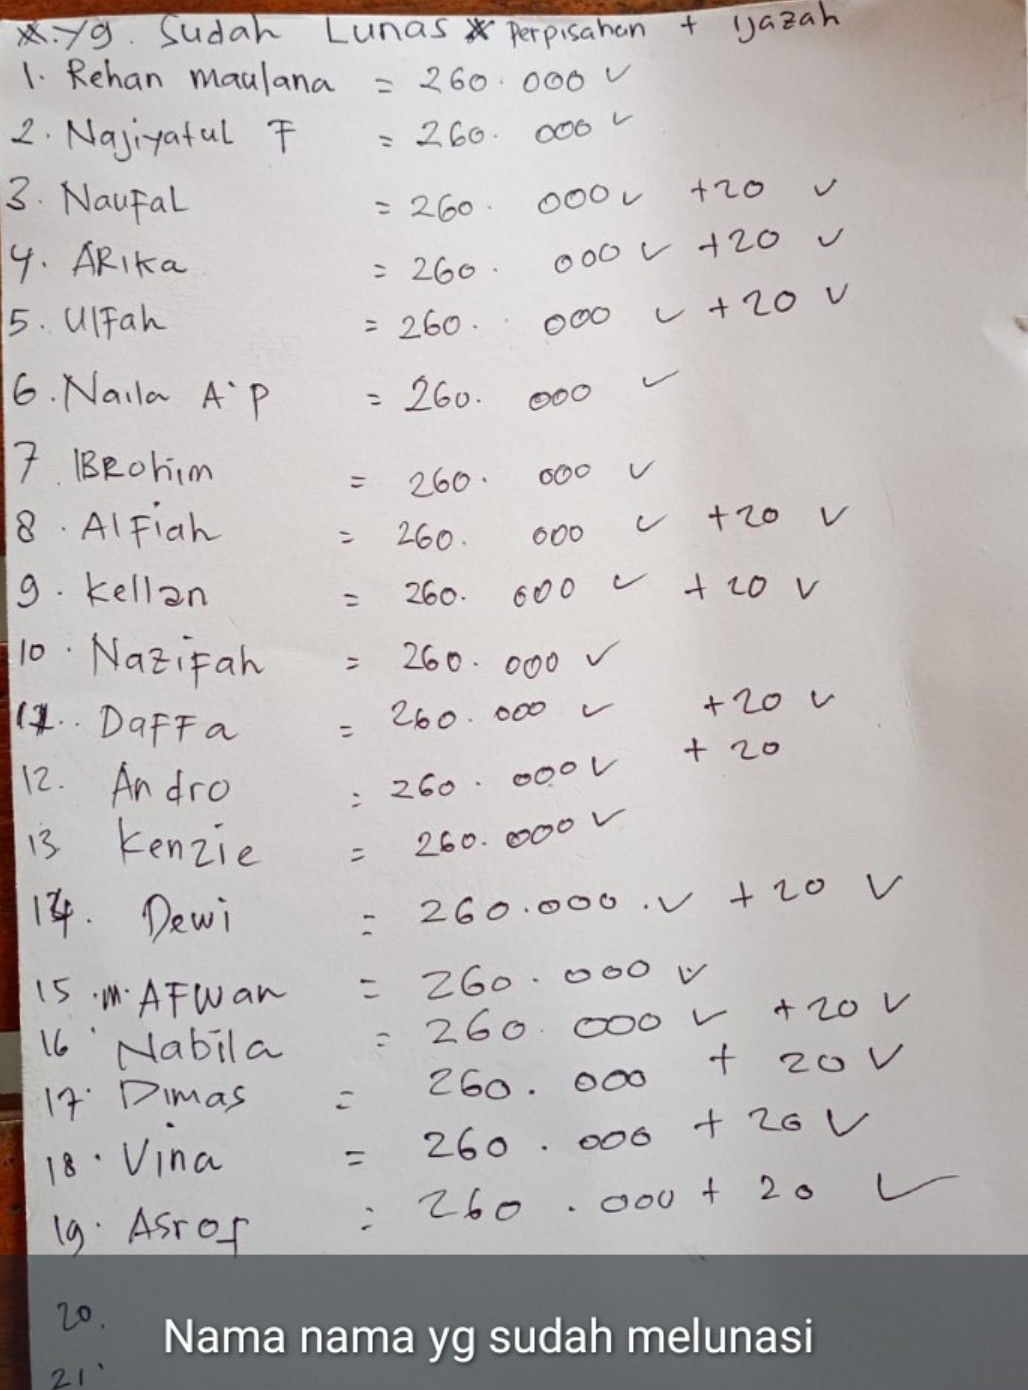 *. yg. Sudah Lunas * Perpisahan + ijazah
1. Rehan maulana = 260.000 ✓
2. Najiyatul F = 260.000 ✓
3. Naufal = 260.000 ✓ +20 ✓
4. ARIKa = 260.000 ✓ +20 ✓
5. Ulfah = 260.000 ✓ +20 ✓
6. Naila A.P = 260.000 ✓
7. IBRohim = 260.000 ✓
8. Alfiah = 260.000 ✓ +20 ✓
9. Kellan = 260.000 ✓ +20 ✓
10. Nazifah = 260.000 ✓
11. Daffa = 260.000 ✓ +20 ✓
12. Andro = 260.000 ✓ +20
13 Kenzie = 260.000 ✓
14. Dewi = 260.000 . ✓ +20 ✓
15. m. AFWan = 260.000 ✓
16. Nabila = 260.000 ✓ +20 ✓
17. Dimas = 260.000 + 20 ✓
18. Vina = 260.000 + 20 ✓
19. Asrof = 260.000 + 20 ✓
20.
Nama nama yg sudah melunasi
21.